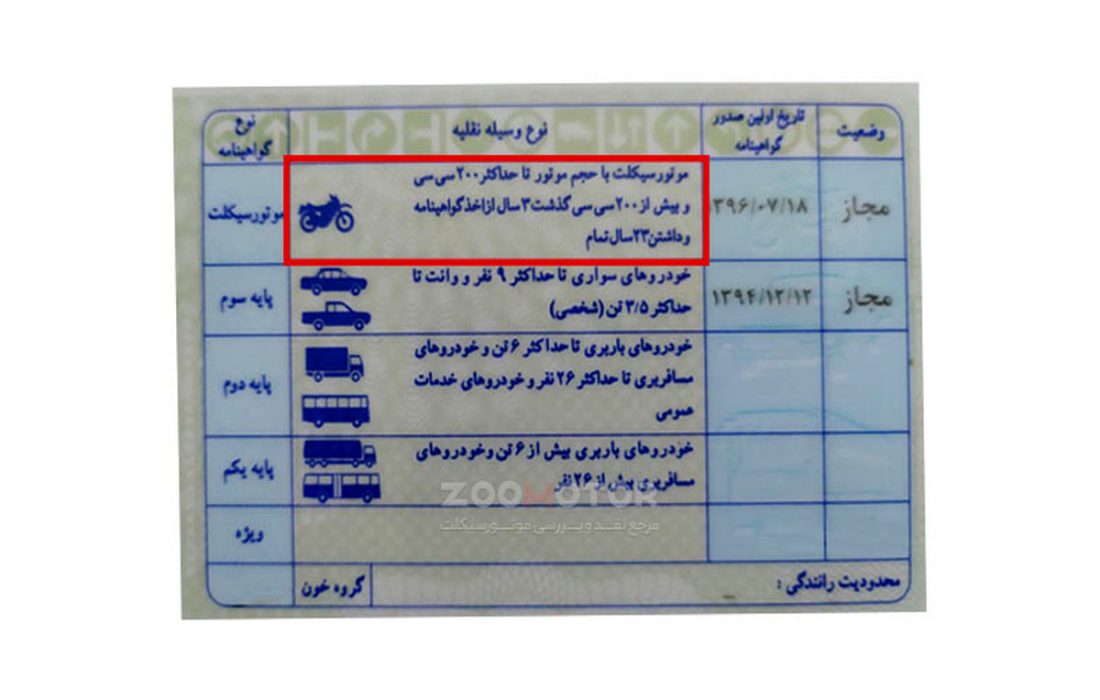 وضعیت
تاریخ اولین صدور
گواهینامه
نوع وسیله نقلیه
نوع
گواهینامه
مجاز
۱۳۹۶/۰۷/۱۸
موتورسیکلت با حجم موتور تا حداکثر ۲۰۰ سی سی
و بیش از ۲۰۰ سی سی گذشت ۳ سال از اخذ گواهینامه
و داشتن ۲۳ سال تمام
موتورسیکلت
مجاز
۱۳۹۴/۱۲/۱۲
خودروهای سواری تا حداکثر ۹ نفر و وانت تا
حداکثر ۳/۵ تن (شخصی)
پایه سوم
خودروهای باربری تا حداکثر ۶ تن و خودروهای
مسافربری تا حداکثر ۲۶ نفر و خودروهای خدمات
عمومی
پایه دوم
خودروهای باربری بیش از ۶ تن و خودروهای
مسافربری بیش از ۲۶ نفر
پایه یکم
ZOOMOTOR
مرجع نقد و بررسی موتورسیکلت
ویژه
محدودیت رانندگی :
گروه خون